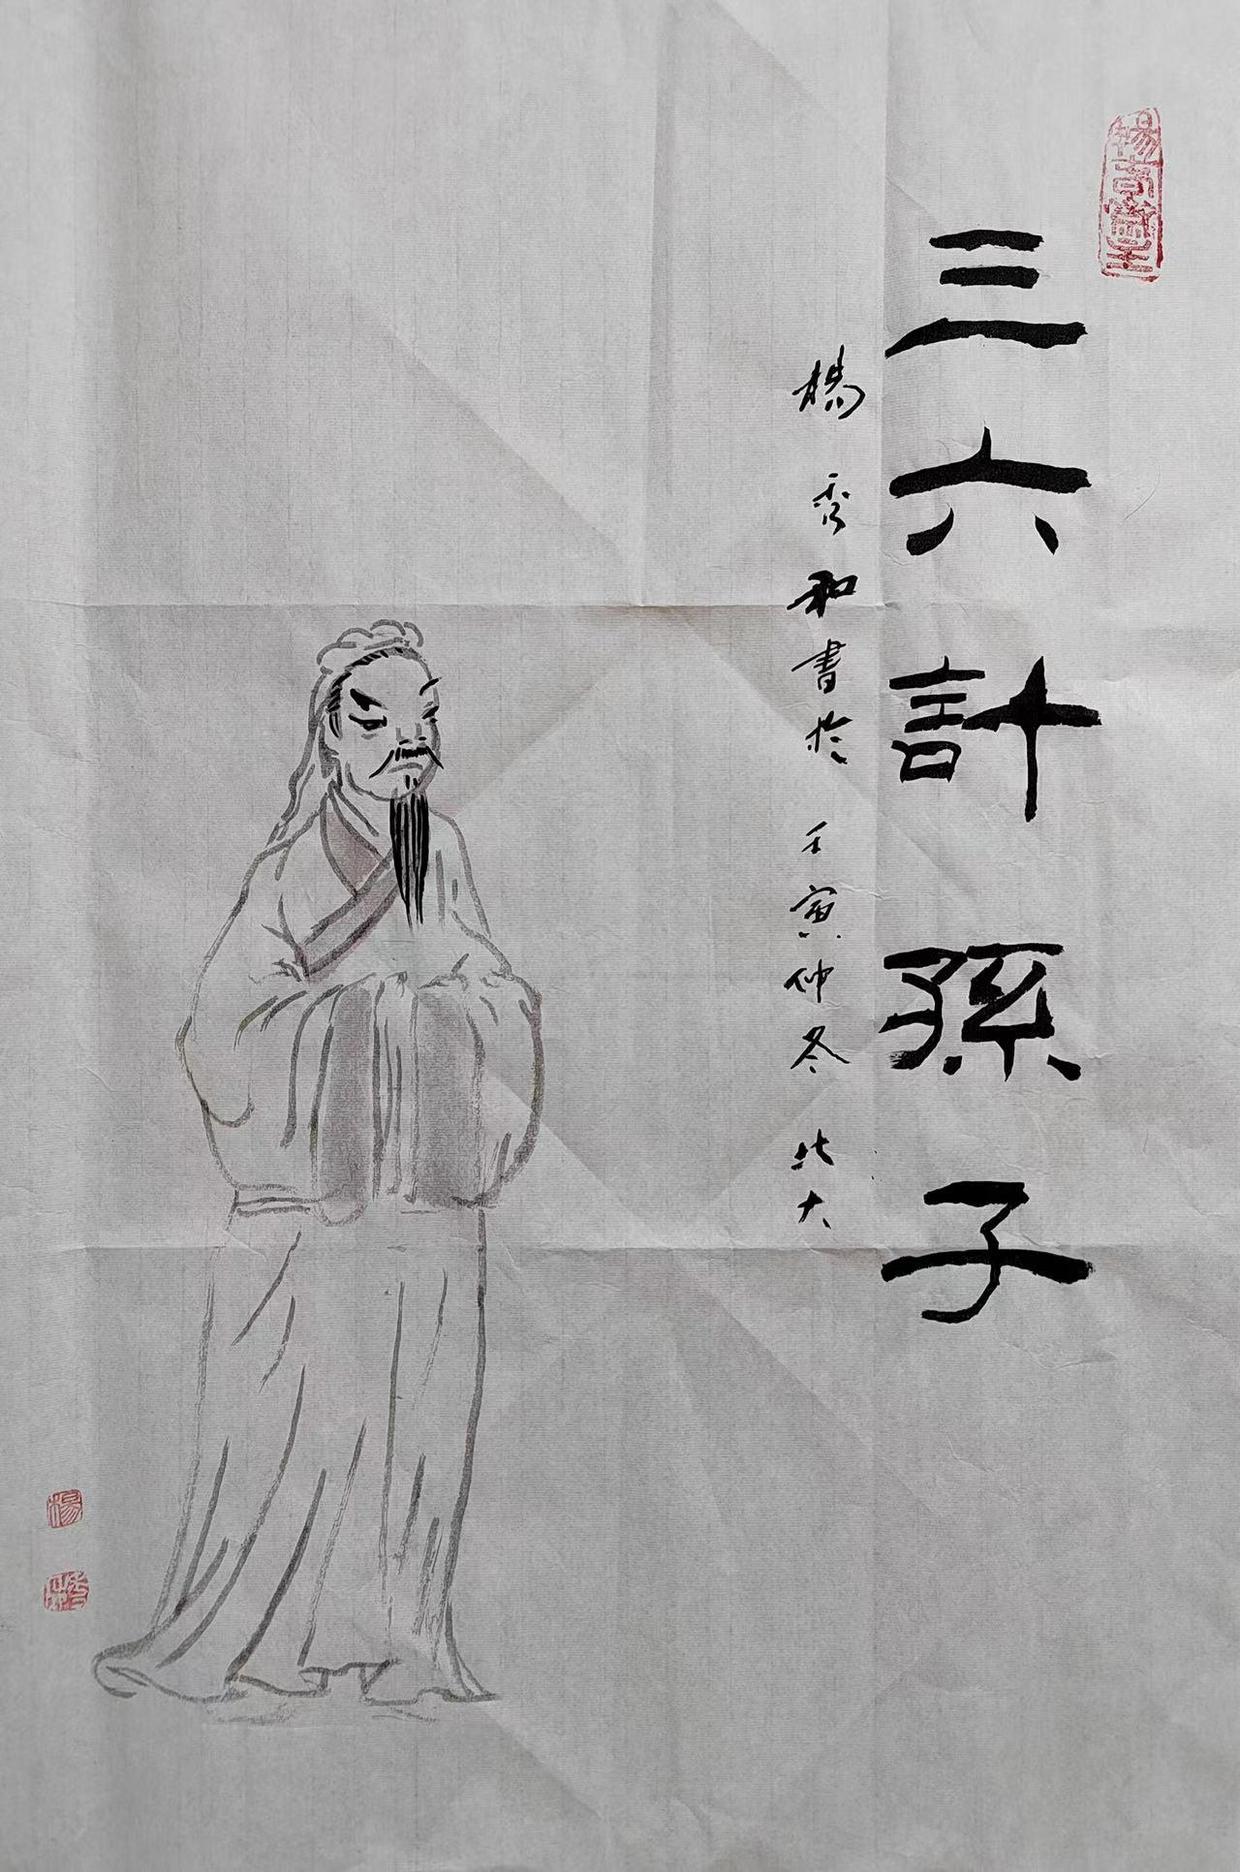 三六計孫子
楊秀和書於壬寅仲冬北大
楊